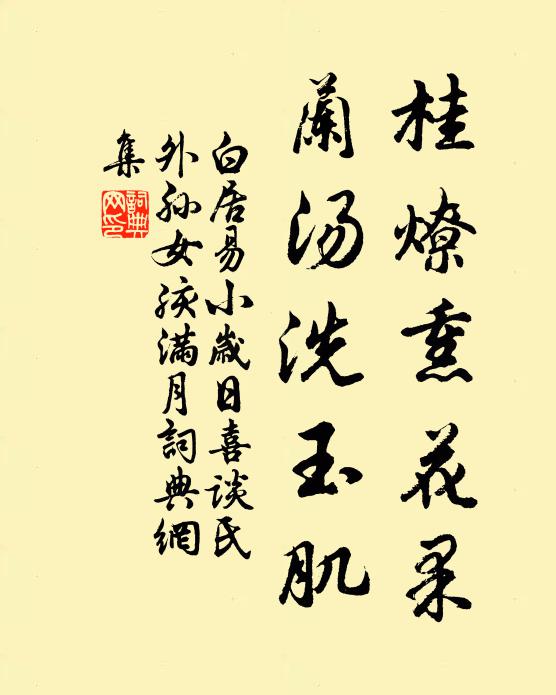 桂燎熏花果
蘭湯洗玉肌
白居易小歲日喜談氏
外孫女孩滿月詞典網
集
詞典
网印